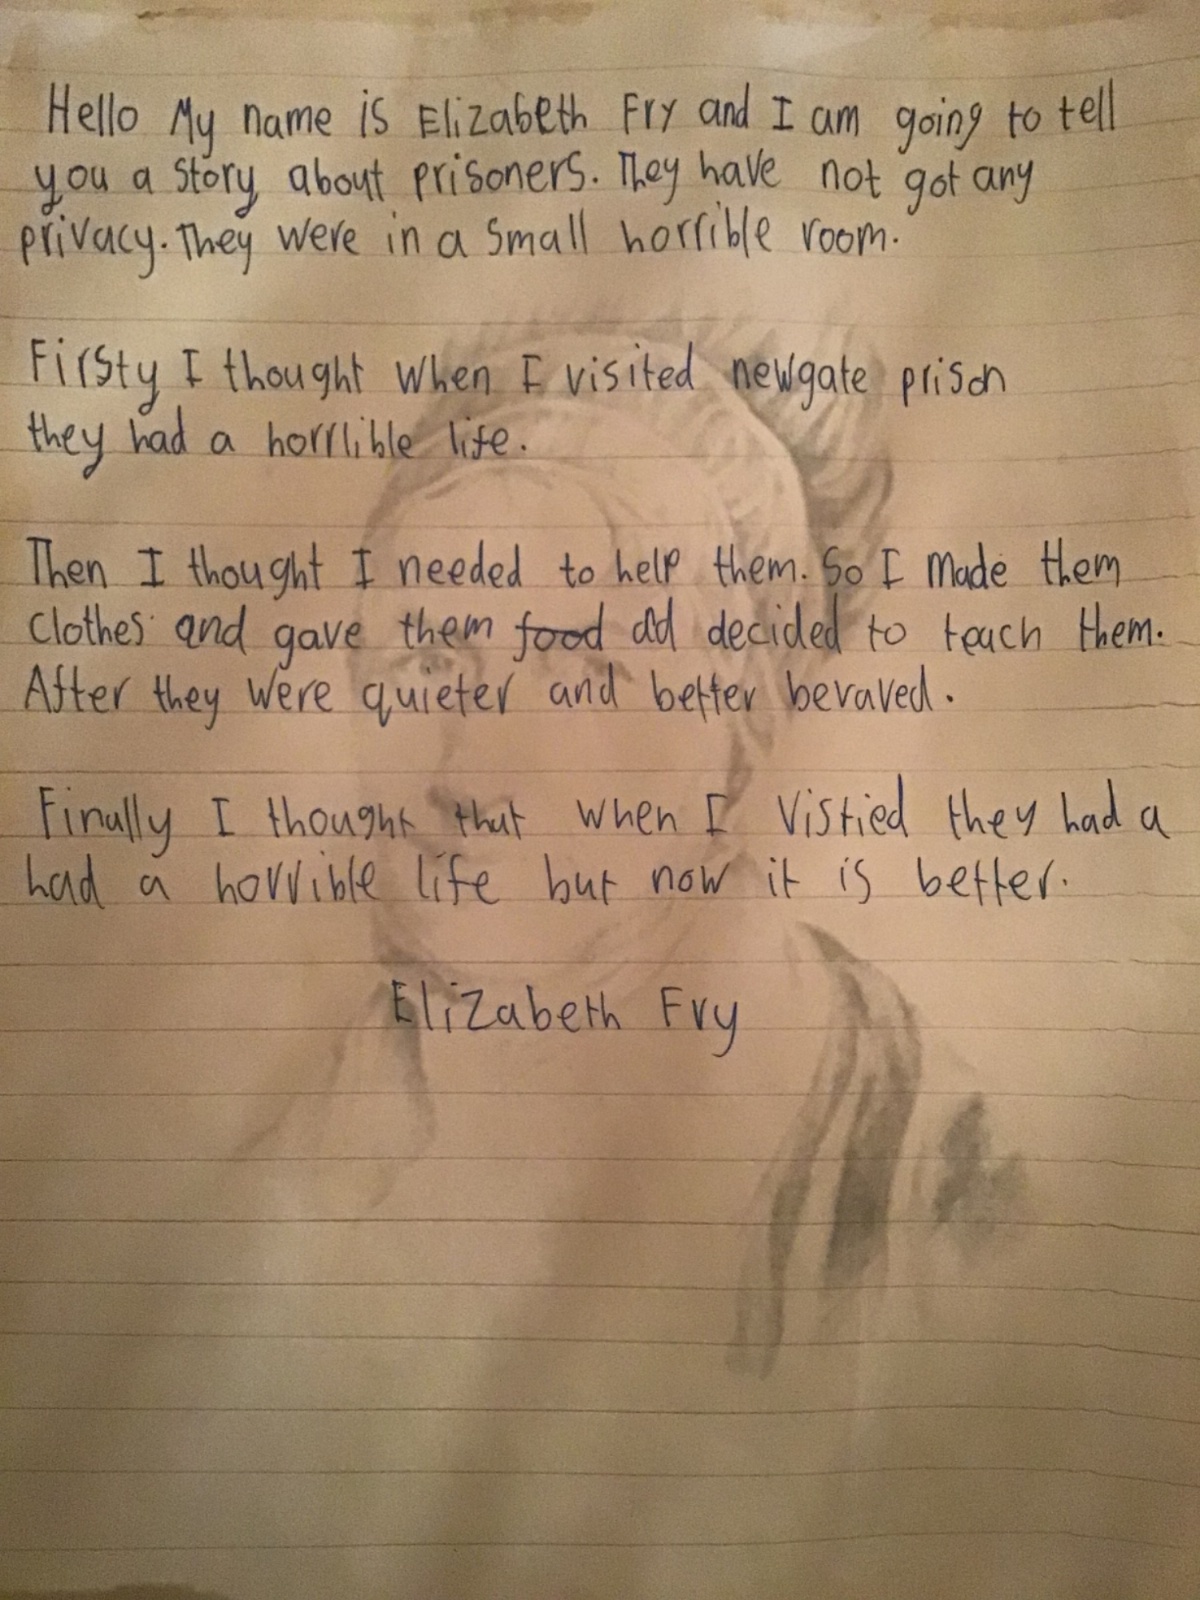 Hello My name is Elizabeth Fry and I am going to tell
you a story about prisoners. They have not got any
privacy. They were in a small horrible room.
Firsty I thought when I visited newgate prison
they had a horrlible life.
Then I thought I needed to help them. So I made them
clothes and gave them food add decided to teach them.
After they were quieter and better bevaved.
Finally I thought that when I Vistied they had a
had a horrible life but now it is better.
Elizabeth Fry